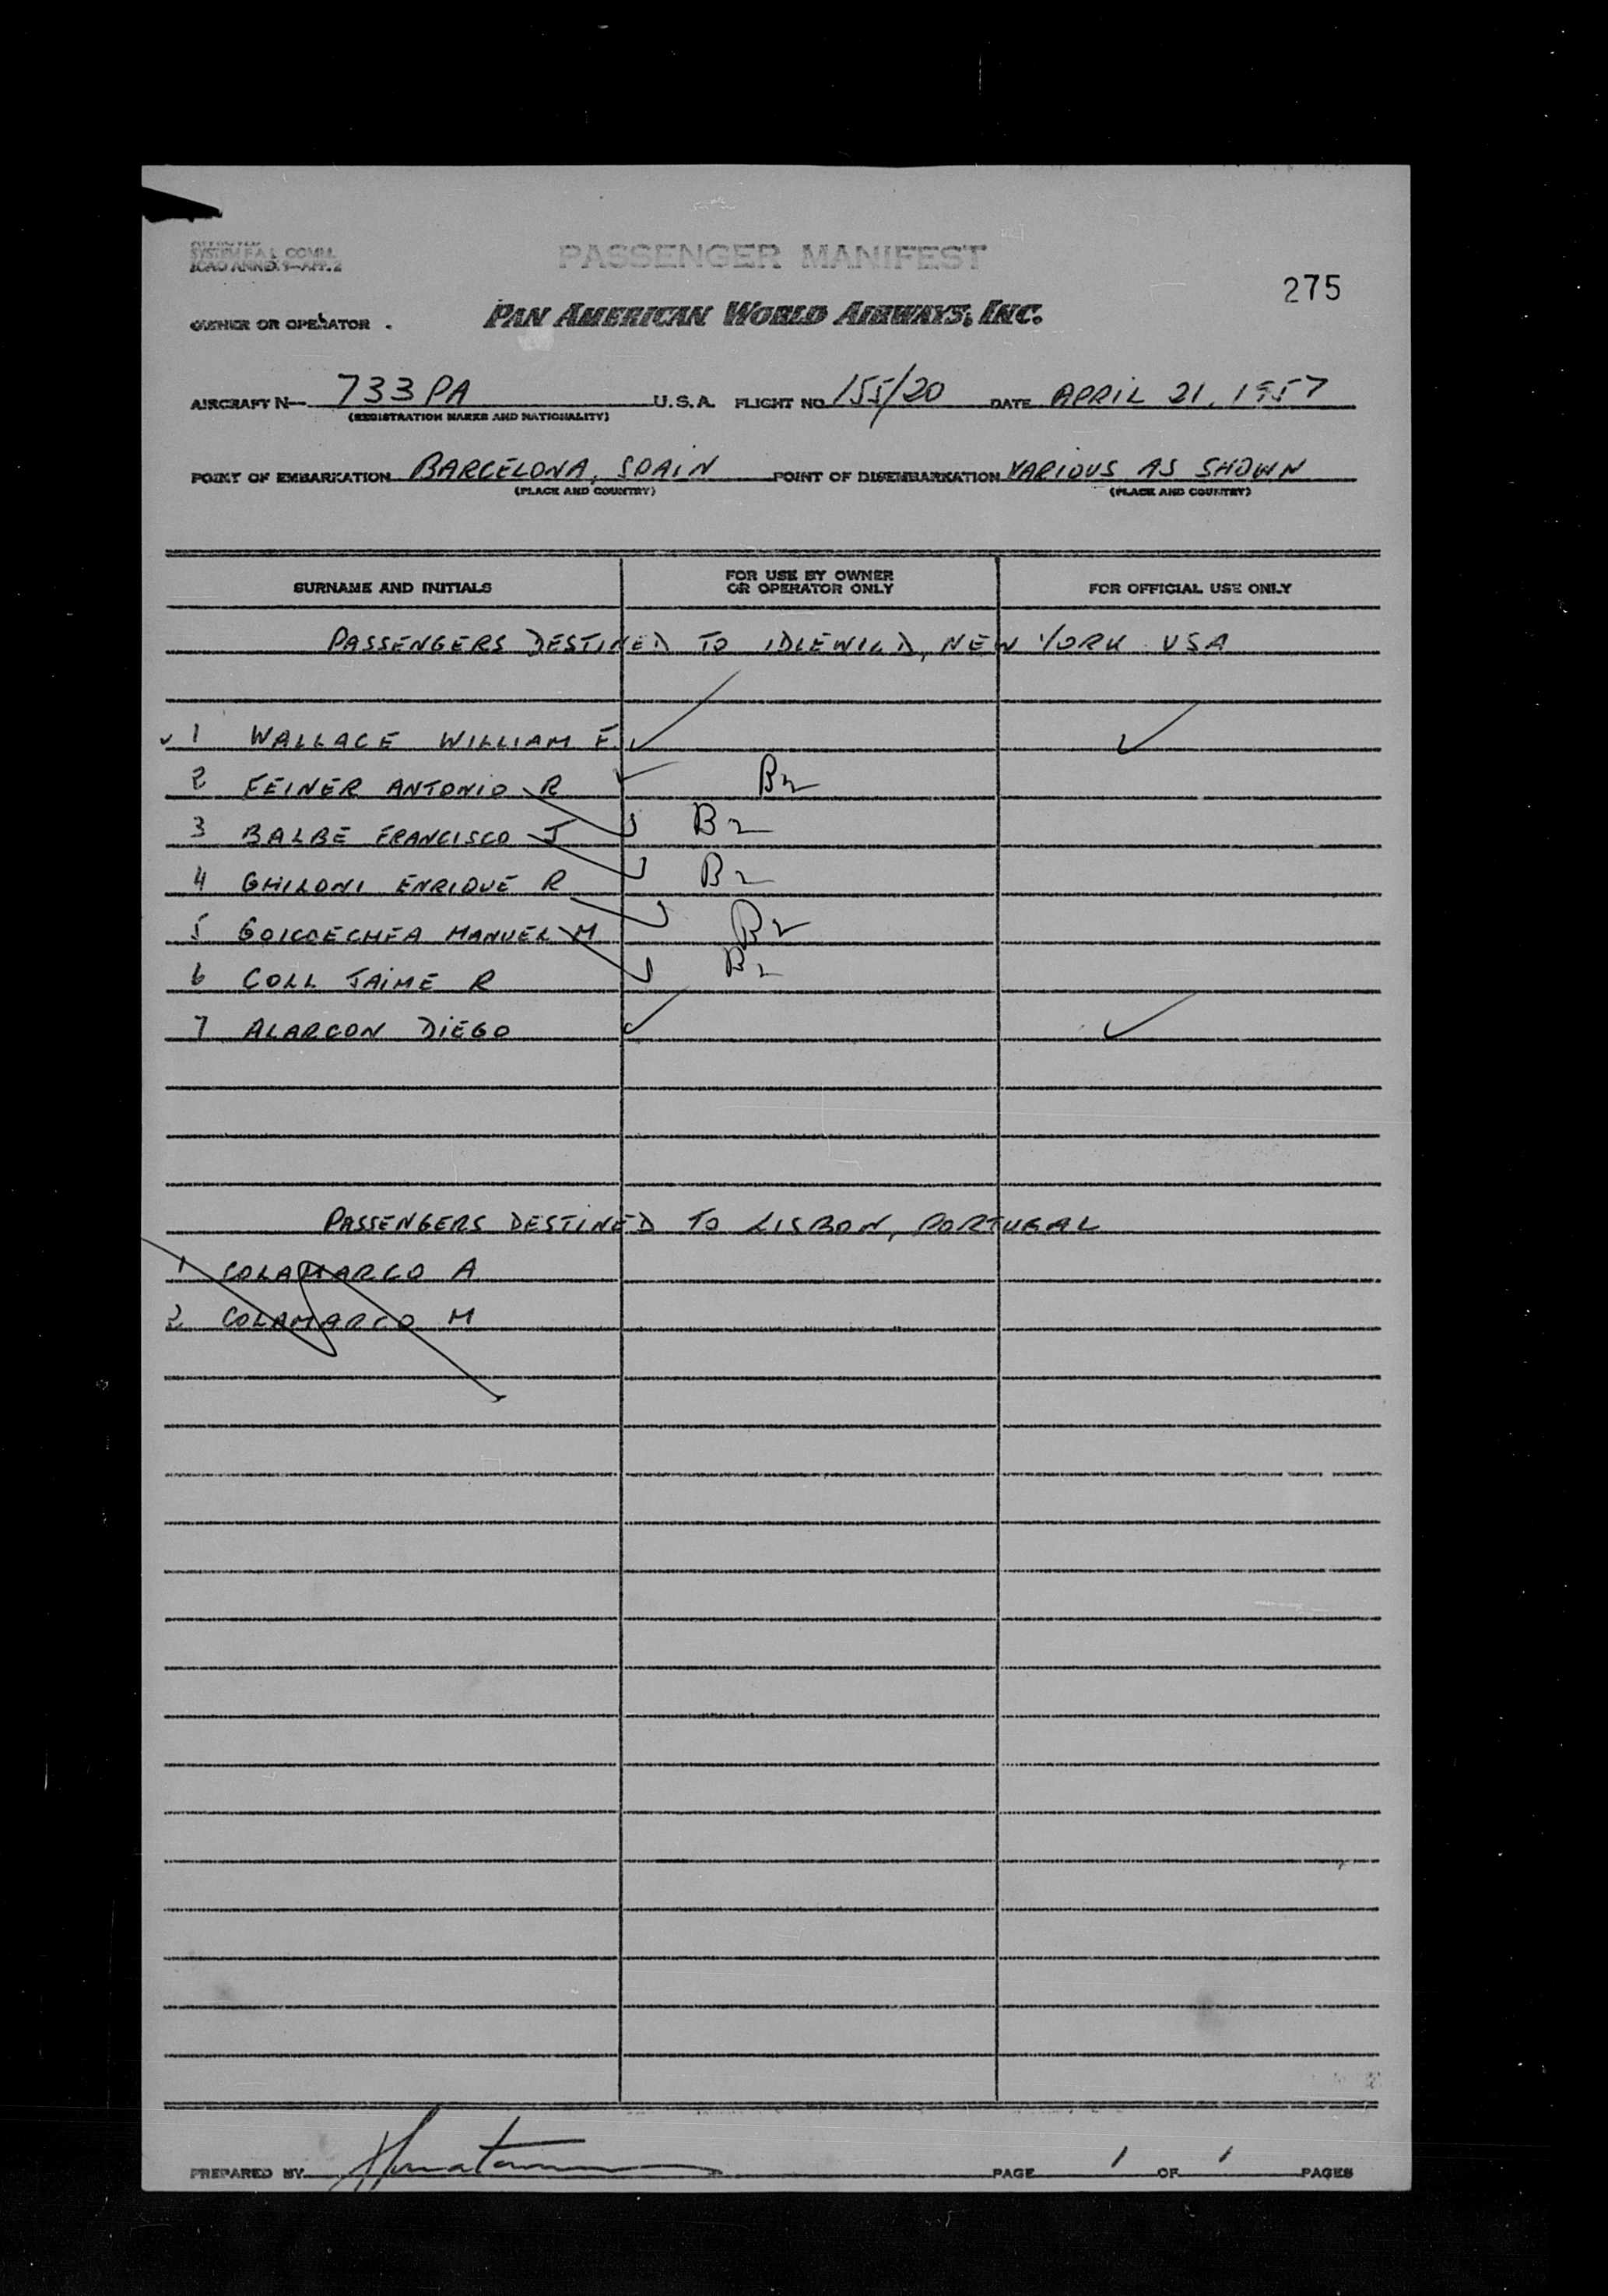 APPROVED
SYSTEM F.A.L. COMM.
ICAO ANNEX 9—APP. 2
PASSENGER MANIFEST
275
OWNER OR OPERATOR
PAN AMERICAN WORLD AIRWAYS, INC.
AIRCRAFT N— 733 PA U.S.A. FLIGHT NO 155/20 DATE APRIL 21, 1957
(REGISTRATION MARKS AND NATIONALITY)
POINT OF EMBARKATION BARCELONA, SPAIN POINT OF DISEMBARKATION VARIOUS AS SHOWN
(PLACE AND COUNTRY) (PLACE AND COUNTRY)
SURNAME AND INITIALS FOR USE BY OWNER OR OPERATOR ONLY FOR OFFICIAL USE ONLY
PASSENGERS DESTINED TO IDLEWILD, NEW YORK USA
1 WALLACE WILLIAM F.
2 FEINER ANTONIO R B2
3 BALBE FRANCISCO J B2
4 GHILONI ENRIQUE R B2
5 GOICOECHEA MANUEL M B2
6 COLL JAIME R B2
7 ALARCON DIEGO
PASSENGERS DESTINED TO LISBON, PORTUGAL
1 COLAMARCO A
2 COLAMARCO M
PREPARED BY PAGE 1 OF 1 PAGES